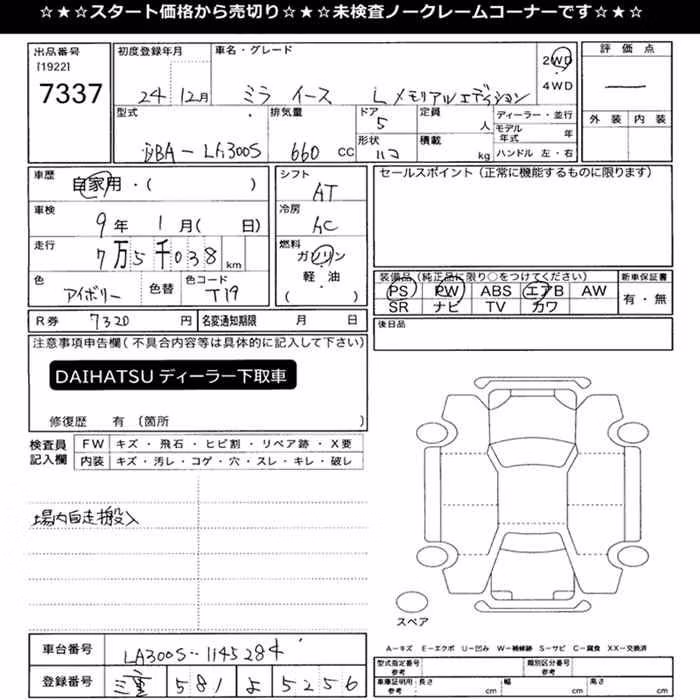 ☆★☆スタート価格から売切り☆★☆未検査ノークレームコーナーです☆★☆
出品番号
[1922]
7337
初度登録年月
24年 12月
車名・グレード
ミラ イース L メモリアルエディション
2WD
4WD
評価点
―
外装 内装
型式
DBA-LA300S
排気量
660 CC
ドア
5
形状
ハコ
定員
人
積載
kg
ディーラー・並行
モデル年式 年
ハンドル 左・右
車歴
自家用・( )
車検
9年 1月( 日)
走行
7万5千038 km
色
アイボリー
色替
色コード
T19
シフト
AT
冷房
AC
燃料
ガソリン
軽・油
( )
セールスポイント(正常に機能するものに限ります)
装備品(純正品に限り○をつけてください)
PS PW ABS エアB AW
SR ナビ TV カワ
新車保証書
有・無
R券 7320 円
名変通知期限 月 日
後日品
注意事項申告欄(不具合内容等は具体的に記入して下さい)
DAIHATSU ディーラー下取車
修復歴 有 〔箇所 〕
検査員記入欄
FW キズ・飛石・ヒビ割・リペア跡・X要
内装 キズ・汚レ・コゲ・穴・スレ・キレ・破レ
場内自走搬入
スペア
A-キズ E-エクボ U-凹み W-補修跡 S-サビ C-腐食 XX-交換済
車台番号
LA300S-1145284
登録番号
三重 581 よ 5256
型式指定番号 参考
類別区分番号 参考
車庫証明用 参考
長さ cm 幅 cm 高さ cm